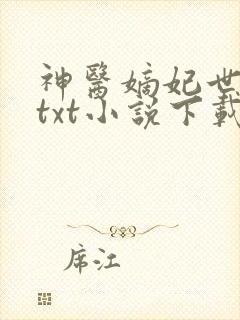 神醫嫡妃世
txt小說下載
席江